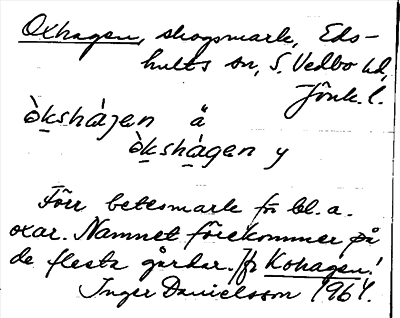 Oxhagen, skogsmark, Eds-
hults sn, S. Vedbo hd,
Jönk. l.
òkshàjen ä
òkshàgen y
Förr betesmark för bl. a.
oxar. Namnet förekommer på
de flesta gårdar. Jfr Kohagen!
Inger Danielsson 1964.